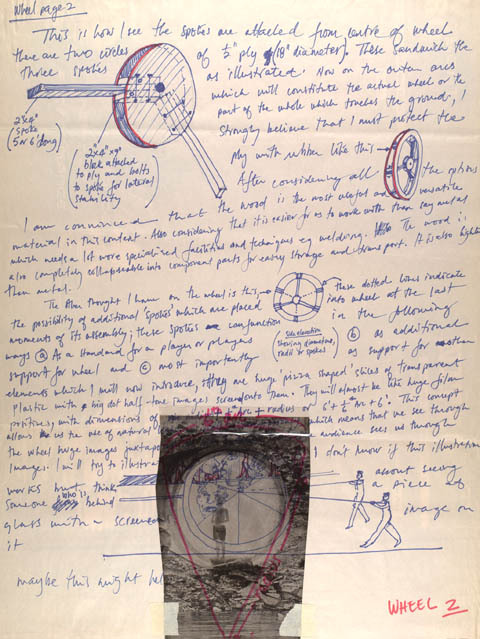 Wheel page 2
This is how I see the spokes are attached from centre of wheel
there are two circles of ½" ply (18" diameter). These sandwich the
three spokes as illustrated. Now on the outer arcs
which will constitute the actual wheel or the
part of the whole which touches the ground, I
strongly believe that I must protect the
ply with rubber like this
2"x4"
spoke
5 or 6' long
2"x4"x9"
block attached
to ply and bolts
to spoke for lateral
stability
After considering all the options
I am convinced that the wood is the most useful and versatile
material in this context. Also considering that it is easier for us to work with than say metal
which needs a lot more specialised facilities and techniques eg welding. The wood is
also completely collapsable into component parts for easy storage and transport. It is also lighter
than metal.
The other thought I have on the wheel is this,
the possibility of additional spokes which are placed
moments of its assembly; these spokes conjunction
these dotted lines indicate
into wheel at the last
in the following
Side elevation
showing diameter,
radii or spokes
ways (a) As a handrail for a player or players (b) as additional
support for wheel and (c) most importantly as support for another
elements which I will now introduce, they are huge 'pizza shaped' slices of transparent
plastic with big dot half-tone images screened onto them. They will almost be like huge film
positives, with dimensions of radius or This concept
allows us the use of natural which means that we see through
the wheel huge images juxtapo audience sees us through
images. I will try to illustrat I don't know if this illustration
works but think about seeing
someone who is behind a piece of
glass with screened image on
it
maybe this might hel
WHEEL 2